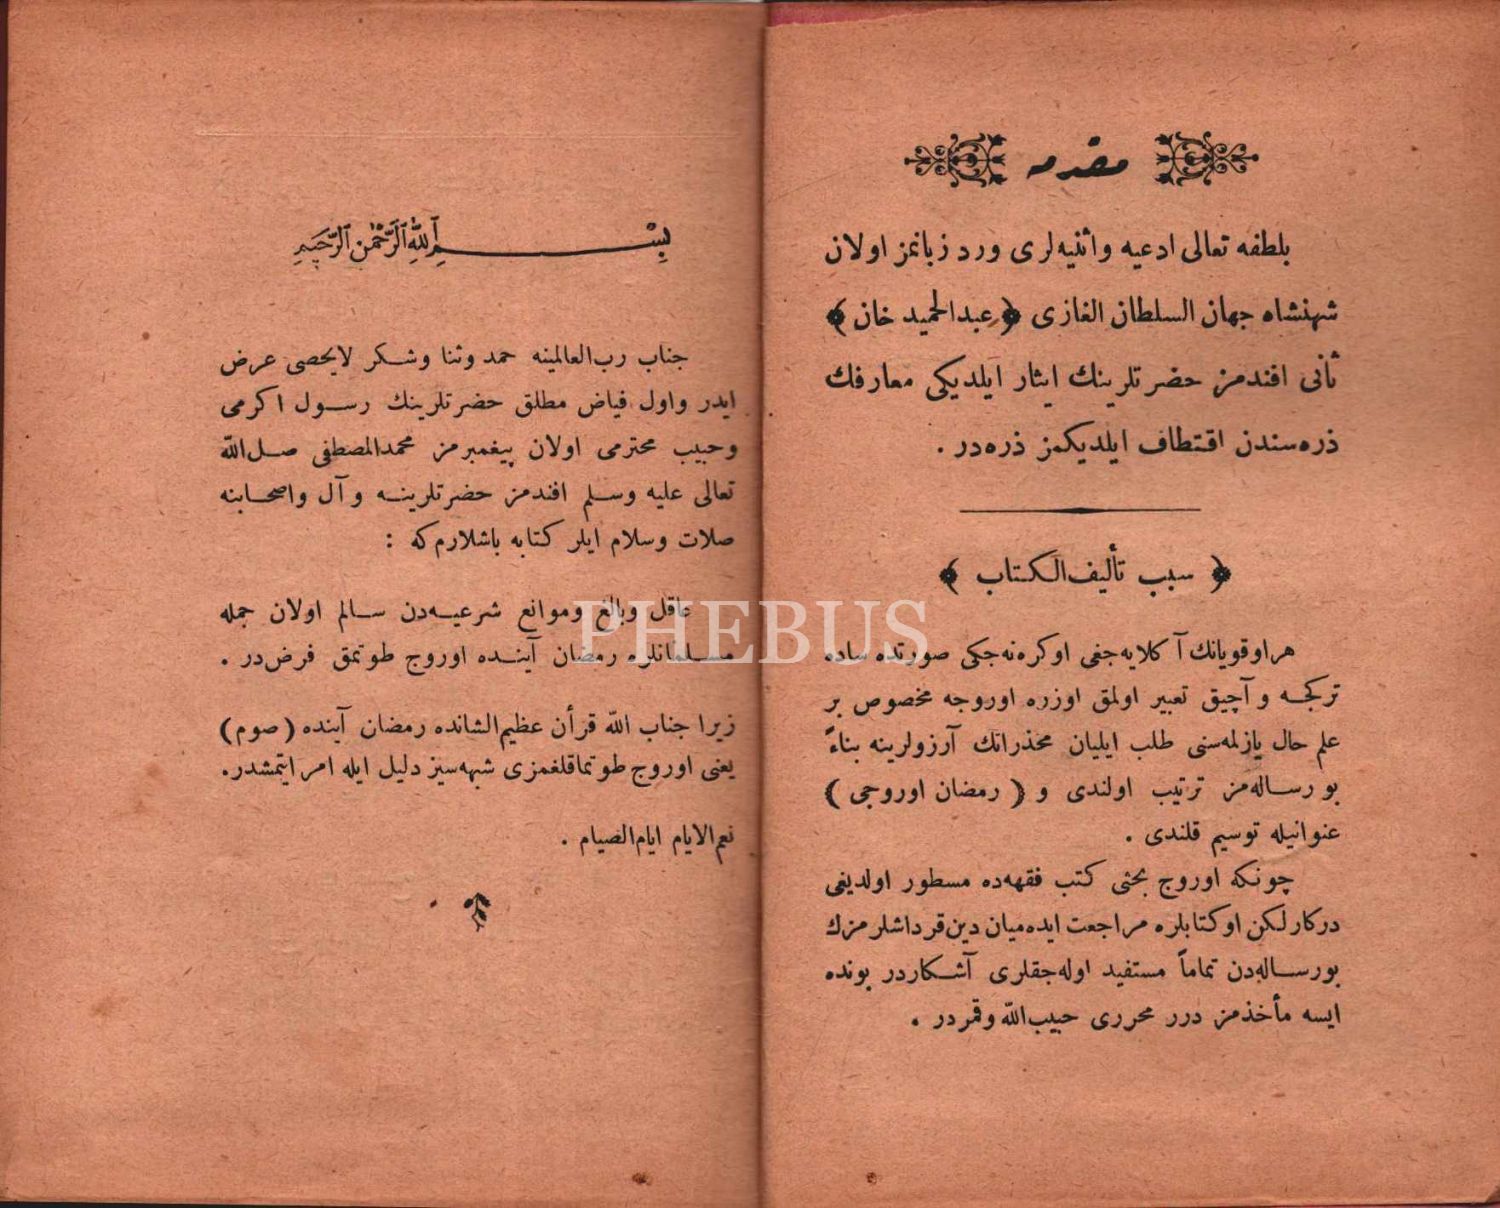 مقدمه
بلطفه تعالی ادعیه واثنیه‌لری ورد زبانمز اولان
شهنشاه جهان السلطان الغازی ﴿ عبدالحمید خان ﴾
ثانی افندمز حضرتلرینك ایثار ایلدیکی معارفك
ذره‌سندن اقتطاف ایلدیکمز ذره‌در .
﴿ سبب تألیف‌الکتاب ﴾
هراوقویانك آکلایه‌جغی اوکره‌نه‌جکی صورتده ساده
ترکجه و آچیق تعبیر اولمق اوزره اوروجه مخصوص بر
علم حال یازلمه‌سنی طلب ایلیان مخذراتك آرزولرینه بناءً
بو رساله‌مز ترتیب اولندی و ﴿ رمضان اوروجی ﴾
عنوانیله توسیم قلندی .
چونکه اوروج بحثی کتب فقهه‌ده مسطور اولدیغی
درکار لکن اوکتابلره مراجعت ایده‌میان دین‌قرداشلرمزك
بورساله‌دن تماماً مستفید اوله‌جقلری آشکاردر بونده
ایسه مأخذمز درر محرری حبیب‌الله وقمردر .
بِسْمِ اللهِ الرَّحْمٰنِ الرَّحِيمِ
جناب رب‌العالمینه حمد وثنا وشکر لایحصی عرض
ایدر واول فیاض مطلق حضرتلرینك رسول اکرمی
وحبیب محترمی اولان پیغمبرمز محمدالمصطفی صل‌الله
تعالی علیه وسلم افندمز حضرتلرینه وآل واصحابنه
صلات وسلام ایلر کتابه باشلارم‌که :
عاقل وبالغ وموانع شرعیه‌دن سالم اولان جمله
مسلمانلره رمضان آینده اوروج طوتمق فرض‌در .
زیرا جناب الله قرأن عظیم‌الشانده رمضان آینده (صوم)
یعنی اوروج طوتماقلغمزی شبهه‌سیز دلیل ایله امر ایتمشدر.
نعم‌الایام ایام‌الصیام .
PHEBUS